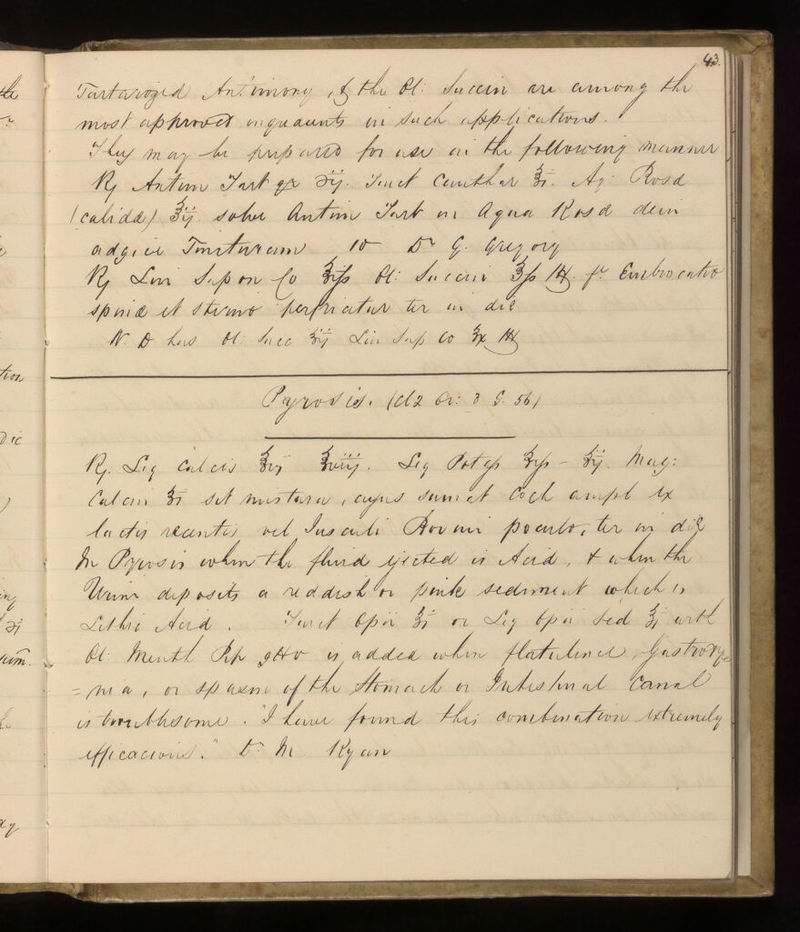 43.
Tartarized Antimony, & the Ol: Succin are among the
most approved unguents in such applications.
They may be prepared for use in the following manner
Rx Antim Tart gr Tinct Canthar ℥i. Aq Rosæ
(calidæ) ℥ij solve Antim Tart in Aqua Rosæ dein
adjice Tincturam Dr G. Gregory
Rx Lin Sapon Co Ol: Succini ℥ss M ft Embrocatio
spinæ et sterno perfricatur ter in die
N. D has Ol Succ ℥ij Lin Sap Co ℥x M
Pyrosis. (Cl 2 Or: 3 G. 56)
Rx. Liq Calcis ℥vj ℥viij. Liq Potass ℥ij. Mag:
Calcin ℥i sit mistura, cujus sumat Coch ampl ex
lactis recentis vel Jusculi Bovini poculo, ter in die
In Pyrosis when the fluid ejected is Acid, & when the
Urine deposits a reddish or pink sediment which is
Lithic Acid. Tinct Opii ℥i or Liq Opii Sed ℥i with
Ol: Menth Pip is added when flatulence, Gastrody-
=nia, or spasm of the Stomach or Intestinal Canal
is troublesome. "I have found this combination extremely
efficacious." Dr M Ryan